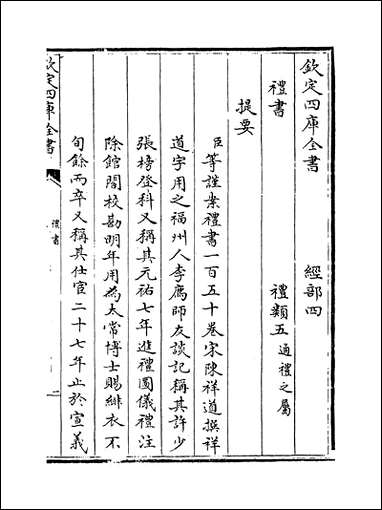 欽定四庫全書 經部四
禮書 禮類五通禮之屬
提要
臣等謹案禮書一百五十卷宋陳祥道撰祥
道字用之福州人李廌師友談記稱其許少
張榜登科又稱其元祐七年進禮圖儀禮注
除館閣校勘明年用為太常博士賜緋衣不
旬餘而卒又稱其仕宦二十七年止於宣義
欽定四庫全書
禮書
一